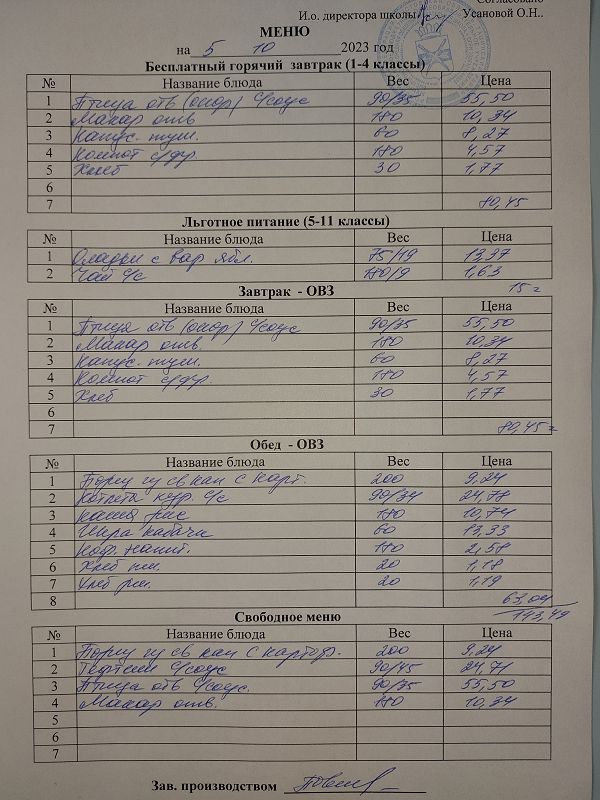 Согласовано
И.о. директора школы Усановой О.Н..
МЕНЮ
на 5 10 2023 год
Бесплатный горячий завтрак (1-4 классы)
№ Название блюда Вес Цена
1 Птица отв (окор) с/соус 90/35 55,50
2 Макар отв 180 10,34
3 Капус. туш. 60 8,27
4 Компот с/фр. 180 4,57
5 Хлеб 30 1,77
6
7 80,45
Льготное питание (5-11 классы)
№ Название блюда Вес Цена
1 Оладьи с вар ябл. 75/19 13,37
2 Чай с/с 180/9 1,63
15 =
Завтрак - ОВЗ
№ Название блюда Вес Цена
1 Птица отв (окор) с/соус 90/35 55,50
2 Макар отв 180 10,34
3 Капус. туш. 60 8,27
4 Компот с/фр. 180 4,57
5 Хлеб 30 1,77
6
7 80,45 =
Обед - ОВЗ
№ Название блюда Вес Цена
1 Борщ из св кап с карт. 200 9,24
2 Котлета кур. с/с 90/34 24,78
3 каша рис 180 10,74
4 Икра кабачк 60 13,33
5 Коф. напит. 180 2,58
6 Хлеб пш. 20 1,18
7 Хлеб рж. 20 1,19
8 63,04
143,49
Свободное меню
№ Название блюда Вес Цена
1 Борщ из св кап с картоф. 200 9,24
2 Тефтели с/соус 90/45 24,71
3 Птица отв с/соус. 90/35 55,50
4 Макар отв. 180 10,34
5
6
7
Зав. производством